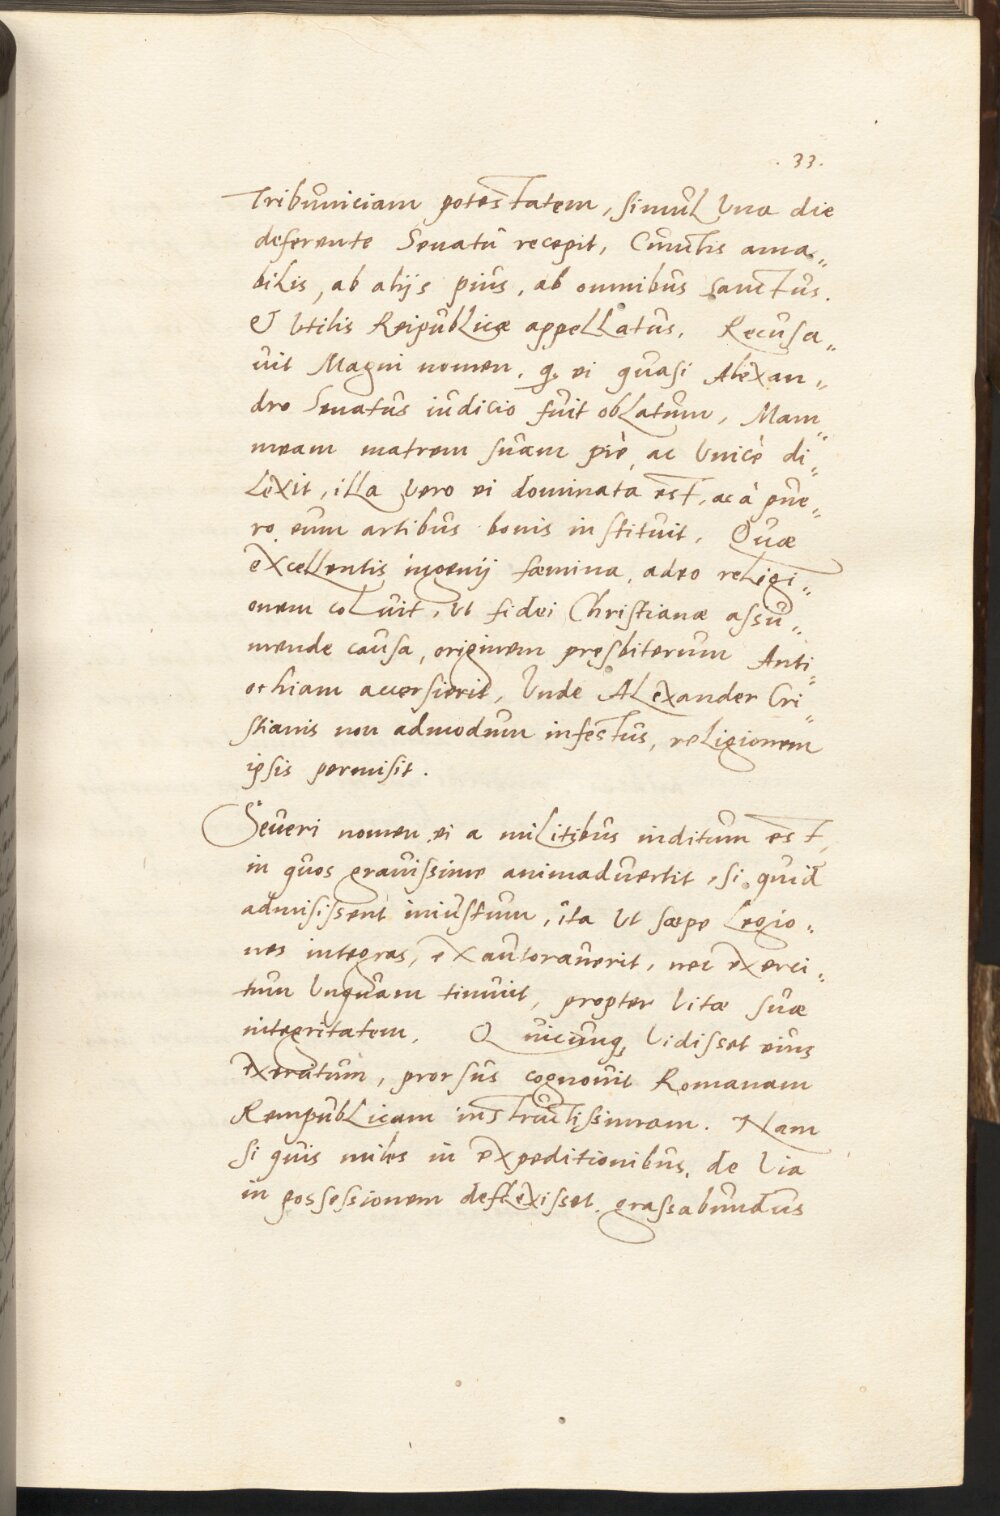 . 33.
Tribuniciam potestatem, simul Una die
deferente Senatu recepit, Cunctis ama„
bilis, ab alijs pius, ab omnibus sanctus.
et Utilis Reipublicæ appellatus, Recusa„
uit Magni nomen. q. ei quasi Alexan„
dro Senatus iudicio fuit oblatum, Mam„
meam matrem suam piè, ac Unicè di„
lexit, illa Vero ei dominata est, ac à pue„
ro eum artibus bonis instituit, Quæ
excellentis ingenij fæmina, adeo religi„
onem coluit, Ut fidei Christianæ assu„
mende causa, originem presbiterum Anti„
ochiam accersierit, Unde Alexander Cri„
stianis non admodum infestus, religionem
ipsis permisit.
Seueri nomen ei a militibus inditum est,
in quos grauissime animaduertit, si quid
admisissent iniustum, ita Ut sæpe legio„
nes integras, exautorauerit, nec exerci„
tum Unquam timuit, propter Vitæ suæ
integritatem. Quicunq; Vidisset eius
exercitum, prorsus cognouit Romanam
Rempublicam instructissimam. Nam
si quis miles in expeditionibus, de Via
in possessionem deflexisset grassabundus